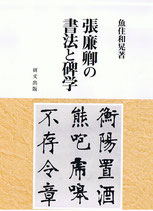 魚住和晃著
張廉卿の
書法と碑学
研文出版
衡陽置酒
熊咆虎嘷
不存令章